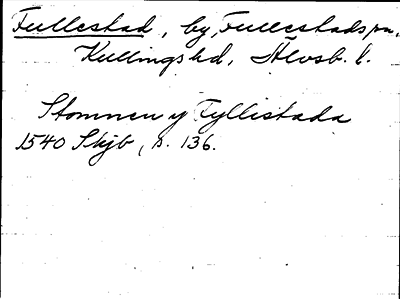 Fullestad, by, Fullestads sn,
Kullings hd, Älvsb. l.
Stommen y Fyllistada
1540 Skjb, s. 136.